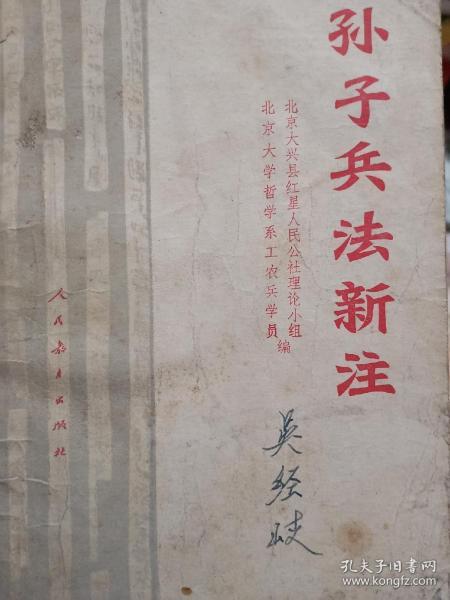 孙子兵法新注
北京大兴县红星人民公社理论小组
北京大学哲学系工农兵学员
编
吴经岐
人民教育出版社
孔夫子旧书网
www.kongfz.com